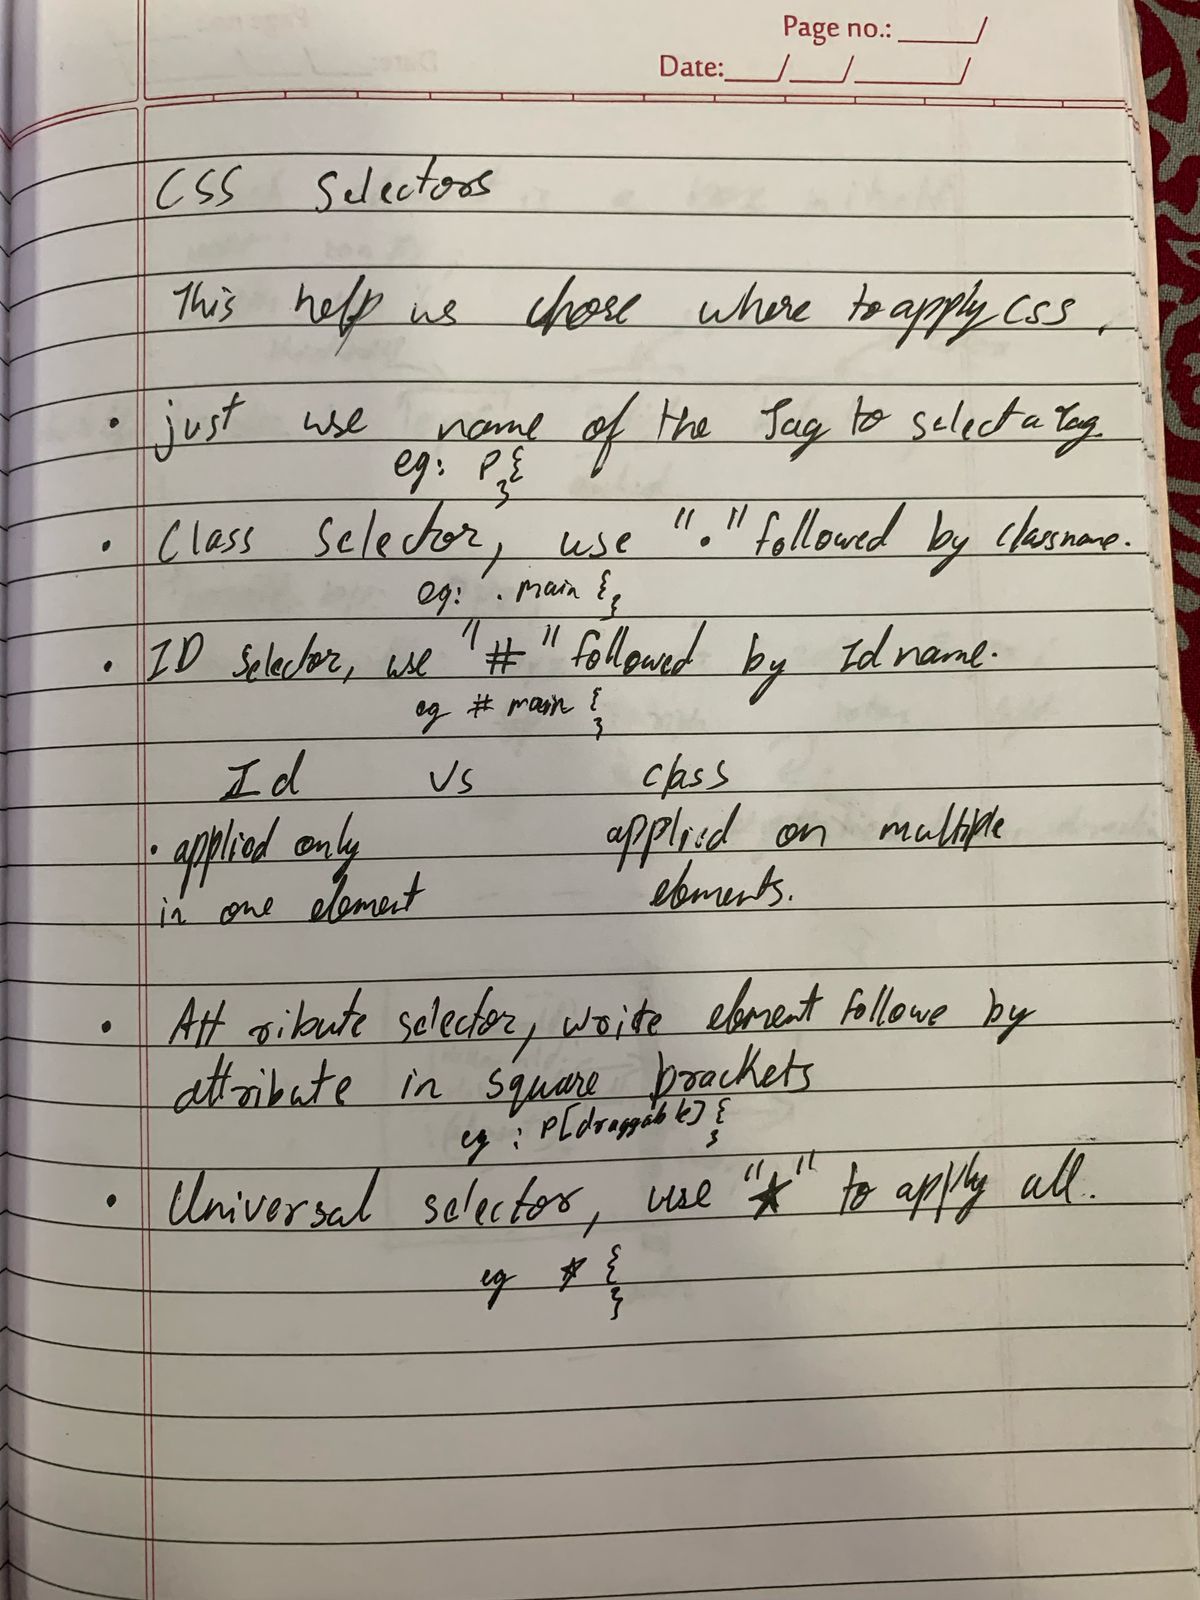 Page no.: ____/
Date:___/___/______/
CSS Selectors
This help us chose where to apply CSS.
• just use name of the Tag to select a Tag.
eg: P{
}
• Class Selector, use "." followed by classname.
eg: . main {
}
• ID Selector, use "#" followed by Id name.
eg # main {
}
Id Vs class
• applied only applied on multiple
in one element elements.
• Attribute selector, write element followe by
attribute in square brackets
eg : P[draggable] {
}
• Universal selector, use "*" to apply all.
eg * {
}